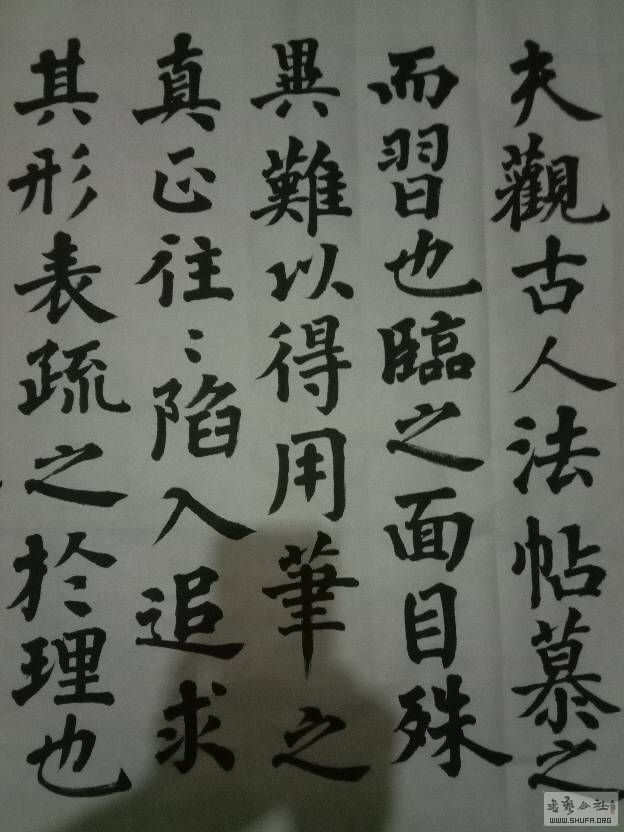 夫觀古人法帖慕之
而習也臨之面目殊
異難以得用筆之
真正往〻陷入追求
其形表疏之於理也
书艺公社
WWW.SHUFA.ORG